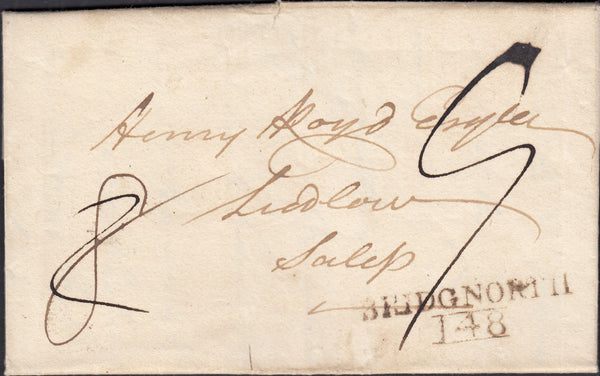 Henry Lloyd Esqre
Ludlow
Salop
8
5
BRIDGNORTH
148